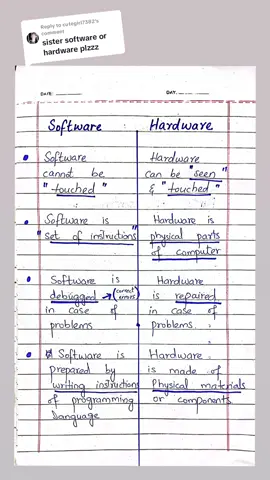 Reply to cutegirl7382's comment
sister software or
hardware plzzz
DATE:
DAY:
Software
Hardware
Software
cannot be
"touched"
Hardware
can be "seen"
& "touched"
Software is
"set of instructions"
Hardware is
physical parts
of computer
Software is
debugged → (correct errors)
in case of
problems
Hardware
is repaired
in case of
problems.
Software is
prepared by
writing instructions
of programming
language
Hardware
is made of
Physical materials
or components